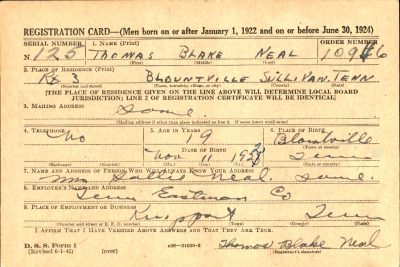 REGISTRATION CARD—(Men born on or after January 1, 1922 and on or before June 30, 1924)
SERIAL NUMBER 1. Name (Print) ORDER NUMBER
N 125 THOMAS BLAKE NEAL 10946
(First) (Middle) (Last)
2. Place of Residence (Print)
Rt 3 BLOUNTVILLE SULLIVAN, TENN
(Number and street) (Town, township, village, or city) (County) (State)
[THE PLACE OF RESIDENCE GIVEN ON THE LINE ABOVE WILL DETERMINE LOCAL BOARD
JURISDICTION; LINE 2 OF REGISTRATION CERTIFICATE WILL BE IDENTICAL]
3. Mailing Address
Same
[Mailing address if other than place indicated on line 2. If same insert word same]
4. Telephone 5. Age in Years 6. Place of Birth
No 19 Blountville
Date of Birth (Town or county)
Nov 11 1922 Tenn
(Exchange) (Number) (Mo.) (Day) (Yr.) (State or country)
7. Name and Address of Person Who Will Always Know Your Address
Mrs Sallie Neal. Same.
8. Employer's Name and Address
Tenn Eastman Co
9. Place of Employment or Business
Kingsport Tenn
(Number and street or R. F. D. number) (Town) (County) (State)
I Affirm That I Have Verified Above Answers and That They Are True.
D. S. S. Form 1
(Revised 6-1-42) (over) 16—21630-2 Thomas Blake Neal